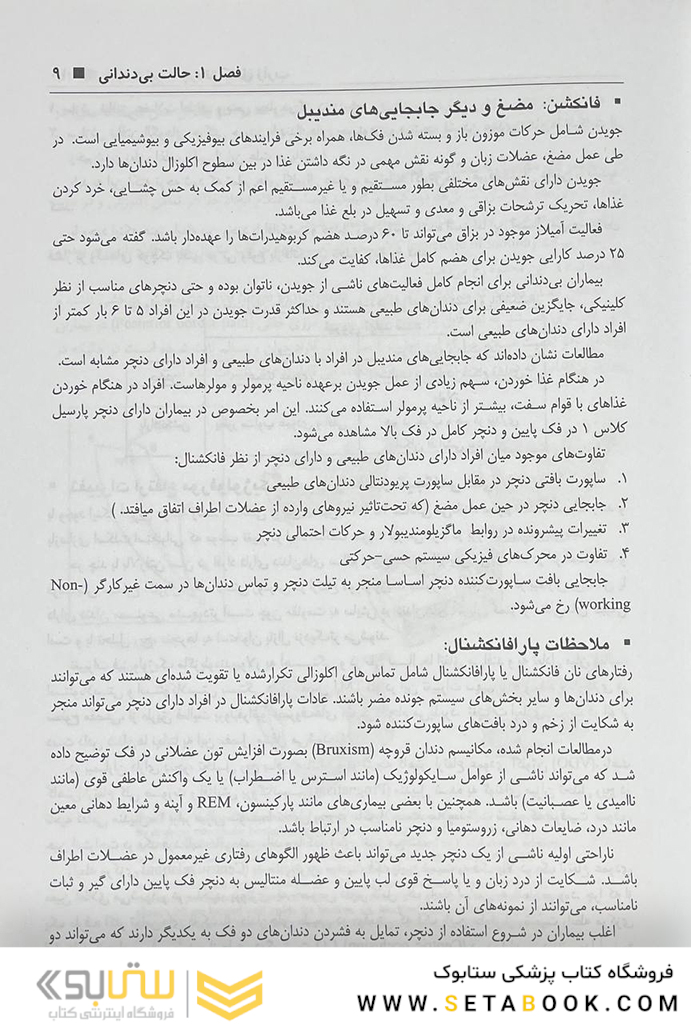 فصل ۱: حالت بی‌دندانی ■ ۹
▪ فانکشن: مضغ و دیگر جابجایی‌های مندیبل
جویدن شامل حرکات موزون باز و بسته شدن فک‌ها، همراه برخی فرایندهای بیوفیزیکی و بیوشیمیایی است. در
طی عمل مضغ، عضلات زبان و گونه نقش مهمی در نگه داشتن غذا در بین سطوح اکلوزال دندان‌ها دارد.
جویدن دارای نقش‌های مختلفی بطور مستقیم و یا غیرمستقیم اعم از کمک به حس چشایی، خرد کردن
غذاها، تحریک ترشحات بزاقی و معدی و تسهیل در بلع غذا می‌باشد.
فعالیت آمیلاز موجود در بزاق می‌تواند تا ۶۰ درصد هضم کربوهیدرات‌ها را عهده‌دار باشد. گفته می‌شود حتی
۲۵ درصد کارایی جویدن برای هضم کامل غذاها، کفایت می‌کند.
بیماران بی‌دندانی برای انجام کامل فعالیت‌های ناشی از جویدن، ناتوان بوده و حتی دنچرهای مناسب از نظر
کلینیکی، جایگزین ضعیفی برای دندان‌های طبیعی هستند و حداکثر قدرت جویدن در این افراد ۵ تا ۶ بار کمتر از
افراد دارای دندان‌های طبیعی است.
مطالعات نشان داده‌اند که جابجایی‌های مندیبل در افراد با دندان‌های طبیعی و افراد دارای دنچر مشابه است.
در هنگام غذا خوردن، سهم زیادی از عمل جویدن برعهده ناحیه پرمولر و مولرهاست. افراد در هنگام خوردن
غذاهای با قوام سفت، بیشتر از ناحیه پرمولر استفاده می‌کنند. این امر بخصوص در بیماران دارای دنچر پارسیل
کلاس ۱ در فک پایین و دنچر کامل در فک بالا مشاهده می‌شود.
تفاوت‌های موجود میان افراد دارای دندان‌های طبیعی و دارای دنچر از نظر فانکشنال:
۱. ساپورت بافتی دنچر در مقابل ساپورت پریودنتالی دندان‌های طبیعی
۲. جابجایی دنچر در حین عمل مضغ (که تحت‌تاثیر نیروهای وارده از عضلات اطراف اتفاق میافتد. )
۳. تغییرات پیشرونده در روابط ماگزیلومندیبولار و حرکات احتمالی دنچر
۴. تفاوت در محرک‌های فیزیکی سیستم حسی-حرکتی
جابجایی بافت ساپورت‌کننده دنچر اساسا منجر به تیلت دنچر و تماس دندان‌ها در سمت غیرکارگر (Non-
working) رخ می‌شود.
▪ ملاحظات پارافانکشنال:
رفتارهای نان فانکشنال یا پارافانکشنال شامل تماس‌های اکلوزالی تکرارشده یا تقویت شده‌ای هستند که می‌توانند
برای دندان‌ها و سایر بخش‌های سیستم جونده مضر باشند. عادات پارافانکشنال در افراد دارای دنچر می‌تواند منجر
به شکایت از زخم و درد بافت‌های ساپورت‌کننده شود.
درمطالعات انجام شده، مکانیسم دندان قروچه (Bruxism) بصورت افزایش تون عضلانی در فک توضیح داده
شد که می‌تواند ناشی از عوامل سایکولوژیک (مانند استرس یا اضطراب) یا یک واکنش عاطفی قوی (مانند
ناامیدی یا عصبانیت) باشد. همچنین با بعضی بیماری‌های مانند پارکینسون، REM و آپنه و شرایط دهانی معین
مانند درد، ضایعات دهانی، زروستومیا و دنچر نامناسب در ارتباط باشد.
ناراحتی اولیه ناشی از یک دنچر جدید می‌تواند باعث ظهور الگوهای رفتاری غیرمعمول در عضلات اطراف
باشد. شکایت از درد زبان و یا پاسخ قوی لب پایین و عضله منتالیس به دنچر فک پایین دارای گیر و ثبات
نامناسب، می‌توانند از نمونه‌های آن باشند.
اغلب بیماران در شروع استفاده از دنچر، تمایل به فشردن دندان‌های دو فک به یکدیگر دارند که می‌تواند دو
فروشگاه کتاب پزشکی ستابوک
WWW.SETABOOK.COM
ستابوک
فروشگاه اینترنتی کتاب